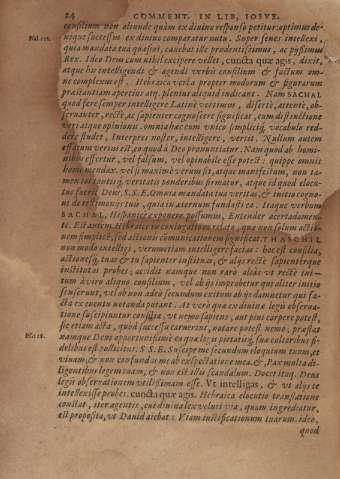 24 COMMENT. IN LIB. IOSVE.
consilium non aliunde quàm ex diuino responso petitur: optimus de-
nique successus ex diuino comparatur nutu. Super senes intellexi,
quia mandata tua quæsiui, canebat ille prudentissimus, ac pijssimus
Rex. Idea Deus cum nihil excipere vellet, cuncta quæ agis, dixit,
atque his intelligendi & agendi verbis consilium & factum om-
ne complexus est. Hebraica verba propter modorum & figurarum
præstantiam apertius atq; plenius aliquid indicant. Nam SACHAL
quod fere semper intelligere Latinè vertimus, disertè, attentè, ob-
seruanter, rectè ac sapienter cognoscere significat, cum distinctione
veri atque opinionis. omnia hæc cum vnico simplici vocabulo red-
dere studet, Interpres noster, intelligere, vertit. Nullum autem
effatum verius est, eo quod à Deo pronuntiatur. Nam quod ab homi-
nibus effertur, vel falsum, vel opinabile esse potest: quippe omnis
homo mendax. vel si maximè verum sit, atque manifestum, non ta-
men tot
veritatis ponderibus firmatur, atque id quod eloquu-
tus fuerit Deus. S. S. E. Omnia mandata tua veritas, & initio cogno-
ui de testimonijs tuis, quia in æternum fundasti ea. Itaque verbum
SACHAL, Hispanicè exponere possumus, Entender acertadamen-
te. Est autem Hebræis
quæ non solum actio-
nem simplicè, sed actionis communicationem significat. THASCHIL
non modo intelligas, verumetiam intelligere facias: hoc est consilia,
actionesq; tuas & tu sapienter instituas, & alijs rectè sapienterque
institutas probes: accidit namque non rarò alias vt rectè ini-
tum à viro aliquo consilium, vel ab ijs improbetur qui aliter initio
senserunt, vel ob non adeò secundum exitum ab ijs damnetur qui fa-
cta ex euentu notanda putant. At verò quæ ex diuinæ legis obserua-
tione suscipiuntur consilia, vt nemo sapiens, aut pius carpere potest,
sic etiam acta, quod successu careant, notare potest nemo; præstat
namque Deus opportunissimè ea quæ legis pietatisq; suæ cultoribus fi-
delibus est pollicitus. S. S. E Suscipe me secundum eloquium tuum, et
viuam, & non confundas me ab exspectatione mea. &, Pax multa di-
ligentibus legem tuam, & non est illis scandalum. Docet itaq; Deus
legis obseruationem vtilissimam esse. Vt intelligas, & vt alijs te
intellexisse probes. cuncta quæ agis. Hebraica elocutio translatione
constat, iter agentis, cui diuina lex veluti via, quam ingrediatur,
est proposita, vt Dauid aiebat: Viam iustificationum tuarum. ideo,
quod